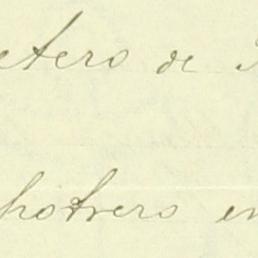 etero de
potrero en